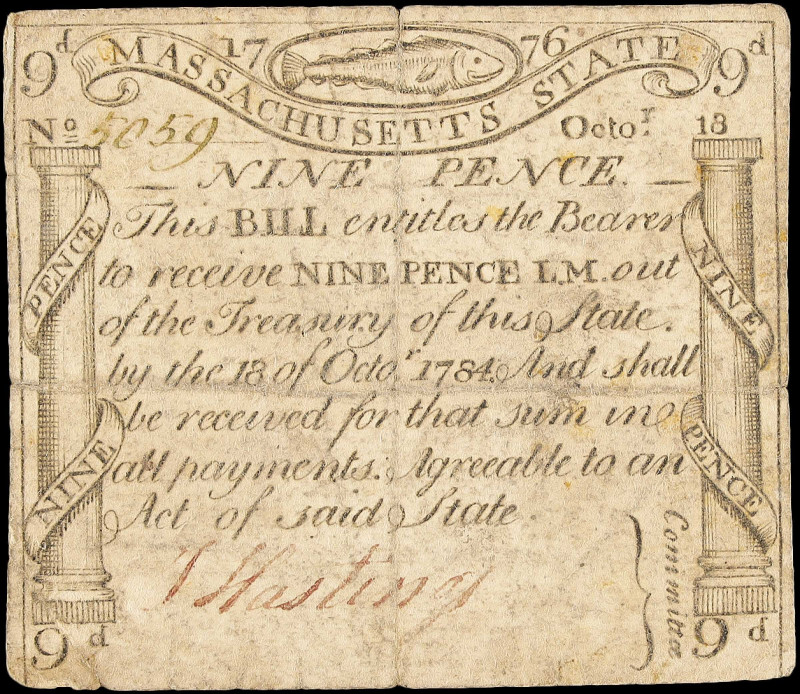 9d 17 76 9d
MASSACHUSETTS STATE
No 5059 Octor. 18
— NINE PENCE. —
This BILL entitles the Bearer
to receive NINE PENCE L.M. out
of the Treasury of this State.
by the 18 of Octor. 1784. And shall
be received for that sum in
all payments. Agreeable to an
Act of said State.
PENCE
NINE
NINE
PENCE
J Hastings
Committee
9d 9d